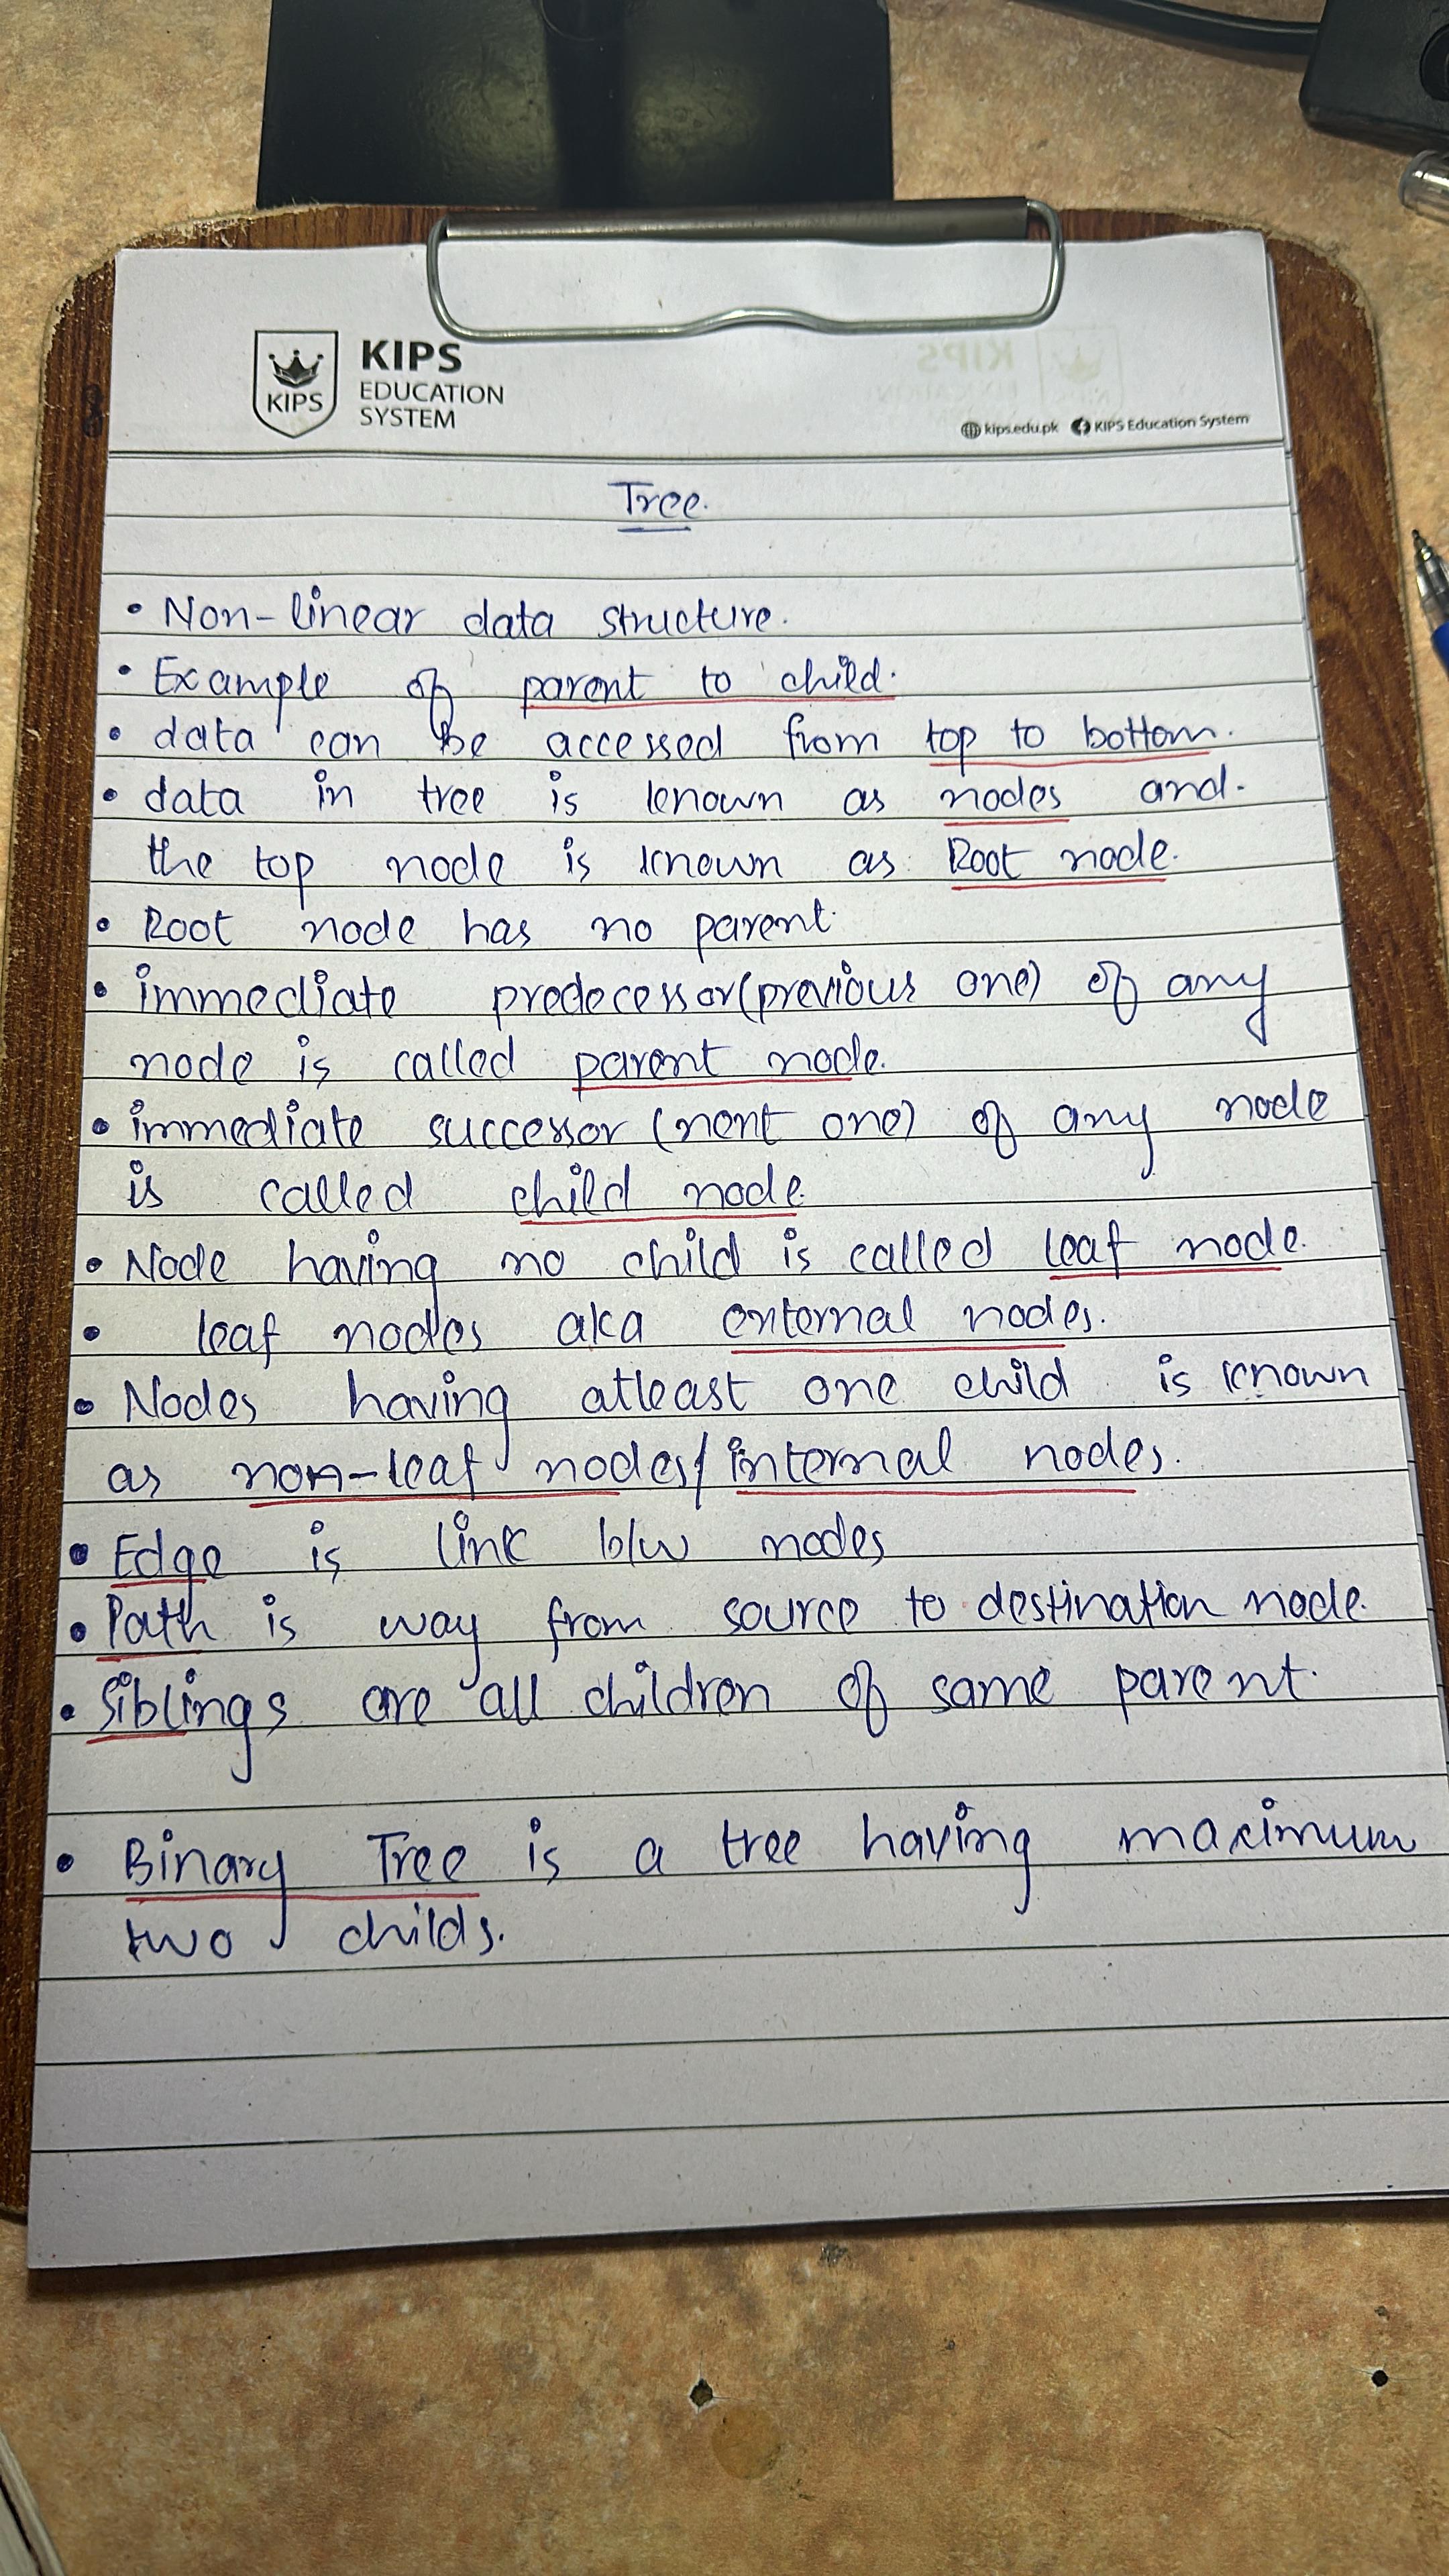 KIPS
KIPS
EDUCATION
SYSTEM
kips.edu.pk KIPS Education System
Tree.
• Non-linear data structure.
• Example of parent to child.
• data can be accessed from top to bottom.
• data in tree is known as nodes and.
the top node is known as Root node.
• Root node has no parent.
• immediate predecessor(previous one) of any
node is called parent node.
• immediate successor (next one) of any node
is called child node.
• Node having no child is called leaf node.
• leaf nodes aka external nodes.
• Nodes having atleast one child is known
as non-leaf nodes/internal nodes.
• Edge is link b/w nodes
• Path is way from source to destination node.
• Siblings are all children of same parent.
• Binary Tree is a tree having maximum
two childs.